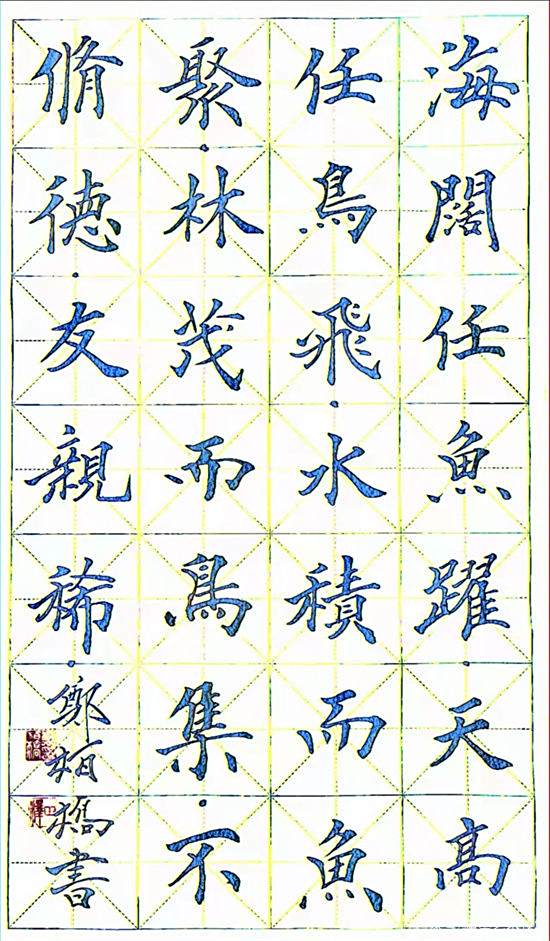 海闊任魚躍·天高
任鳥飛·水積而魚
聚·林茂而鳥集·不
脩德·友親稀·鄭栢橋書